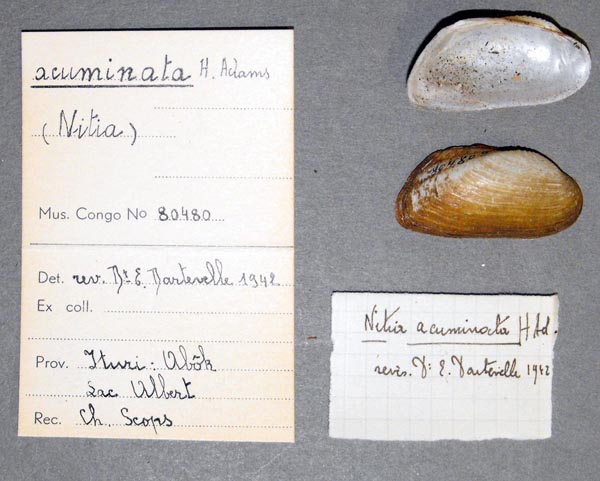 acuminata H. Adams
(Nitia)
Mus. Congo No 80480
Det. rev. Dr. E. Dartevelle 1942
Ex coll.
Prov. Ituri: Abôk
Lac Albert
Rec. Ch. Scops
Nitia acuminata H Ad.
revis. Dr E. Dartevelle 1942